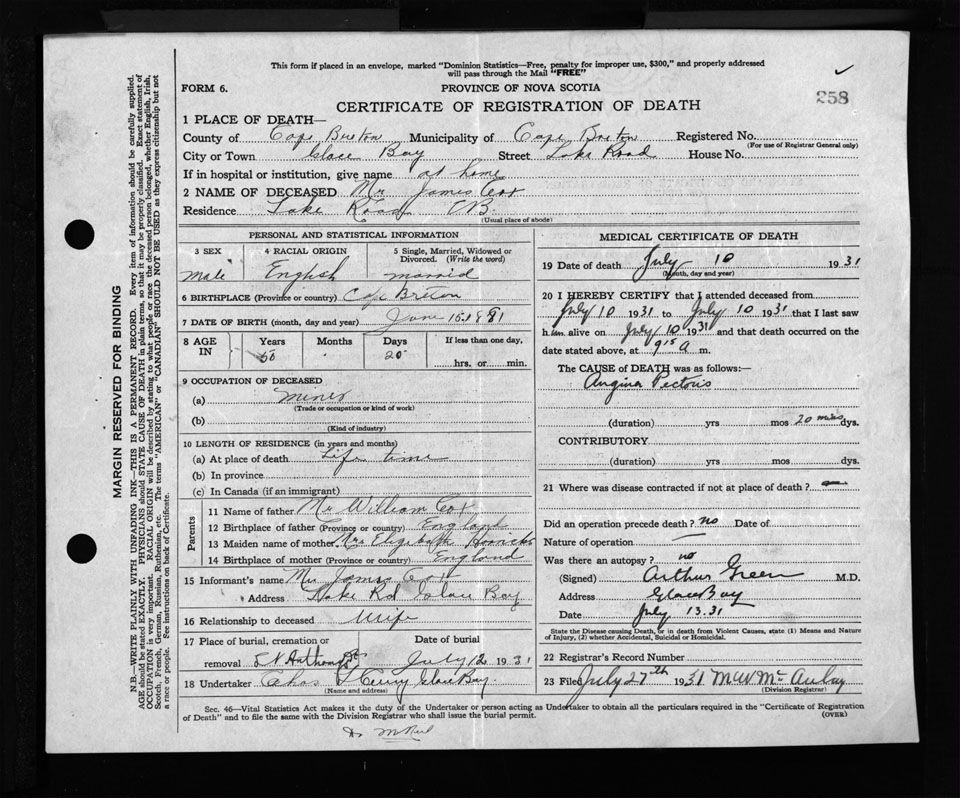 This form if placed in an envelope, marked "Dominion Statistics—Free, penalty for improper use, $300," and properly addressed
will pass through the Mail "FREE"
FORM 6.
PROVINCE OF NOVA SCOTIA
258
CERTIFICATE OF REGISTRATION OF DEATH
1 PLACE OF DEATH—
County of Cape Breton Municipality of Cape Breton Registered No.
(For use of Registrar General only)
City or Town Glace Bay Street Lake Road House No.
If in hospital or institution, give name at home
2 NAME OF DECEASED Mr James Cox
Residence Lake Road CB.
(Usual place of abode)
PERSONAL AND STATISTICAL INFORMATION
3 SEX 4 RACIAL ORIGIN 5 Single, Married, Widowed or
Divorced. (Write the word)
Male English married
6 BIRTHPLACE (Province or country) Cape Breton
7 DATE OF BIRTH (month, day and year)
8 AGE IN Years Months Days If less than one day,
50 20 hrs. or min.
9 OCCUPATION OF DECEASED
(a) miner
(Trade or occupation or kind of work)
(b)
(Kind of industry)
10 LENGTH OF RESIDENCE (in years and months)
(a) At place of death Life time
(b) In province
(c) In Canada (if an immigrant)
Parents
11 Name of father Mr William Cox
12 Birthplace of father (Province or country) England
13 Maiden name of mother Mrs Elizabeth
14 Birthplace of mother (Province or country) England
15 Informant's name Mrs James Cox
Address Lake Rd Glace Bay
16 Relationship to deceased Wife
17 Place of burial, cremation or Date of burial
removal July 12 1931
18 Undertaker Chas Glace Bay.
(Name and address)
MEDICAL CERTIFICATE OF DEATH
19 Date of death July 10 1931
(Month, day and year)
20 I HEREBY CERTIFY that I attended deceased from
July 10 1931 to July 10 1931 that I last saw
him alive on July 10 1931 and that death occurred on the
date stated above, at 9 15 a m.
The CAUSE of DEATH was as follows:—
Angina Pectoris
(duration) yrs mos 20 mins dys.
CONTRIBUTORY
(duration) yrs mos dys.
21 Where was disease contracted if not at place of death?
Did an operation precede death? no Date of
Nature of operation
Was there an autopsy? no
(Signed) Arthur Green M.D.
Address Glace Bay
Date July 13.31
State the Disease causing Death, or in death from Violent Causes, state (1) Means and Nature
of Injury, (2) whether Accidental, Suicidal or Homicidal.
22 Registrar's Record Number
23 Filed July 27th 1931
(Division Registrar)
Sec. 46—Vital Statistics Act makes it the duty of the Undertaker or person acting as Undertaker to obtain all the particulars required in the "Certificate of Registration
of Death" and to file the same with the Division Registrar who shall issue the burial permit.
(OVER)
MARGIN RESERVED FOR BINDING
N.B.—WRITE PLAINLY WITH UNFADING INK—THIS IS A PERMANENT RECORD. Every item of information should be carefully supplied.
AGE should be stated EXACTLY. PHYSICIANS should STATE CAUSE OF DEATH in plain terms, so that it may be properly classified. Exact statement of
OCCUPATION is very important. RACIAL ORIGIN will be described by stating to what people or race the deceased person belonged, whether English, Irish,
Scotch, French, German, Russian, Ruthenian, etc. The terms "AMERICAN" or "CANADIAN" SHOULD NOT BE USED as they express citizenship but not
a race or people. See instructions on back of Certificate.